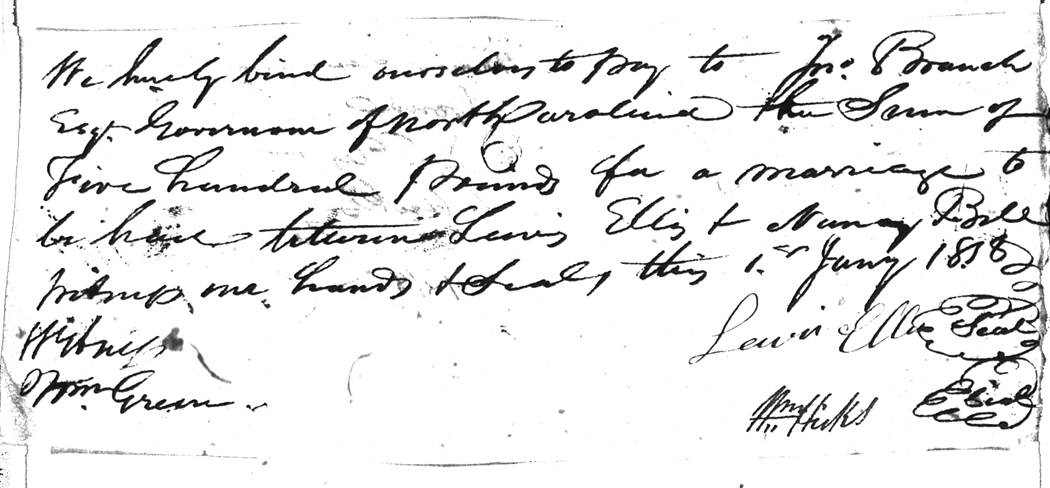 We hereby bind ourselves to pay to Jno. Branch
Esqr. Governour of North Carolina the Sum of
Five hundred Pounds for a marriage to
be had between Lewis Ellis & Nancy Bell
Witness our hands & Seals, this 1st Jany 1818
Lewis Ellis Seal
Witness
Wm. Green
Wm. Hicks Seal